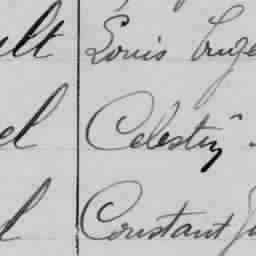 ult Louis Euge
el Celestin
l Constant Ju